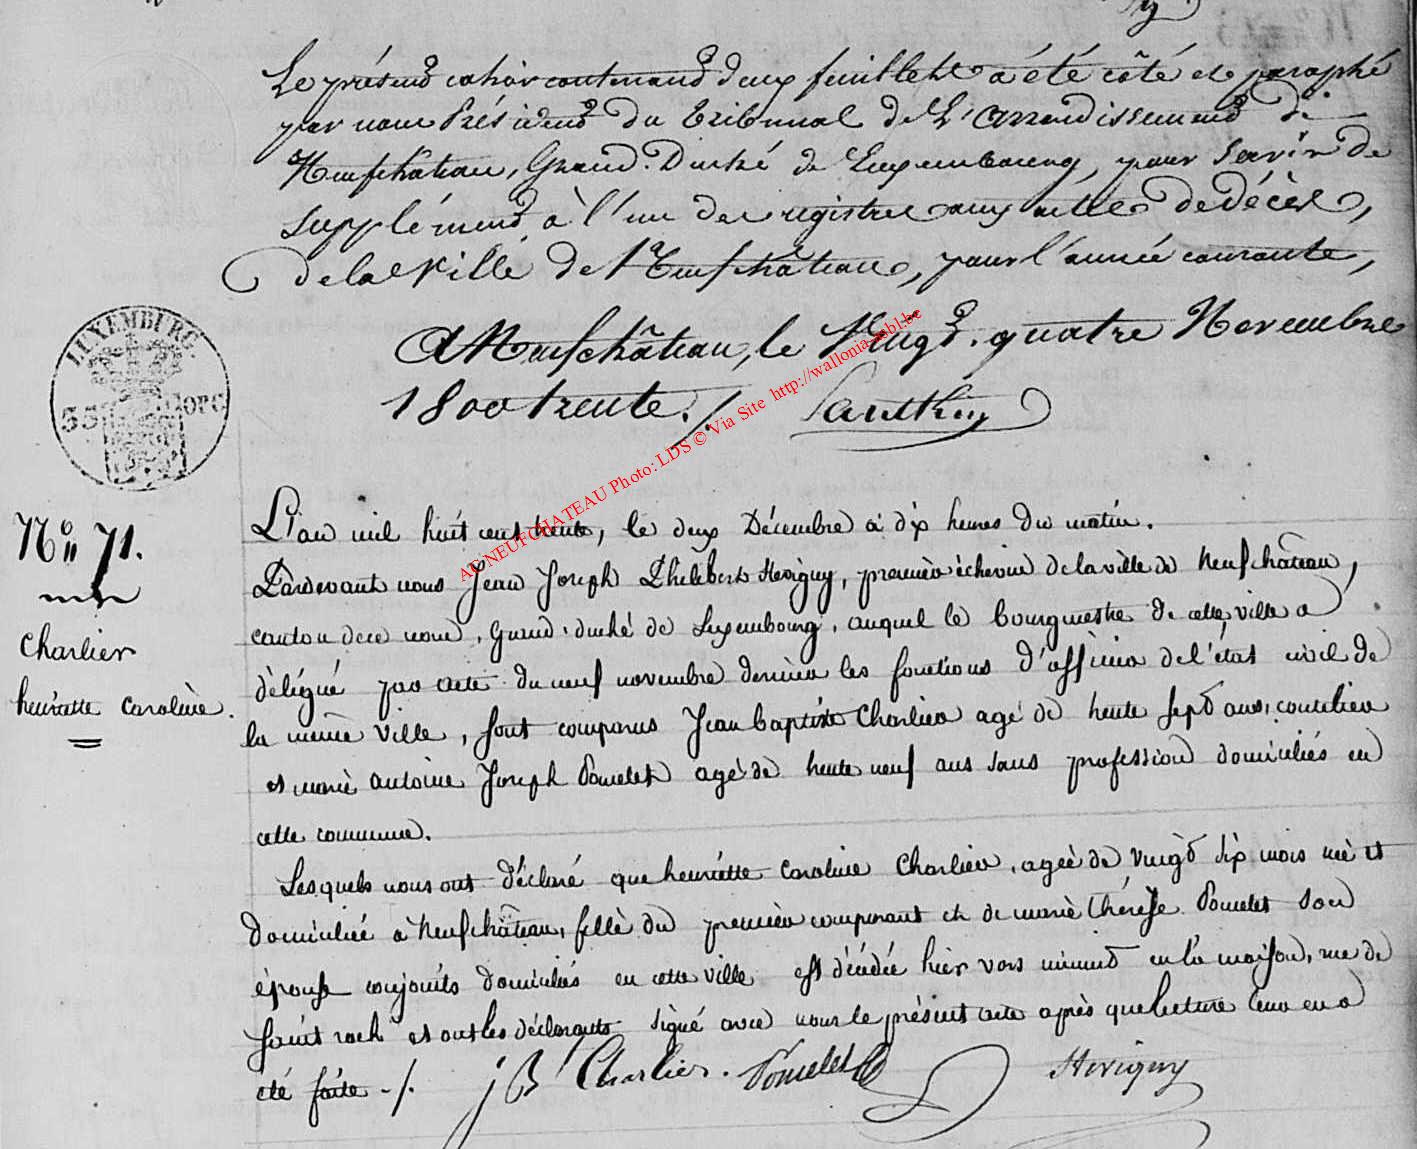 Le présent cahier contenant deux feuillets a été côté et paraphé
par nous Président du Tribunal de L'Arrondissement de
Neufchâteau, Grand-Duché de Luxembourg, pour servir de
supplément à l'un des registres aux actes de décès,
de la Ville de Neufchâteau, pour l'année courante,
A Neufchâteau, le Vingt-quatre Novembre
1800 trente./.
LUXEMBURG.
35 Cope
AG NEUFCHATEAU Photo: LDS © Via Site http://wallonia.mbl.be
No 71.
Charlier
henriette Caroline.
L'an mil huit cent trente, le deux Décembre à dix heures du matin.
Pardevant nous Jean Joseph Philebert Hevigny, premier échevin de la ville de Neufchâteau,
canton de ce nom, Grand-duché de Luxembourg, auquel le bourgmestre de cette ville a
délégué par acte du neuf novembre dernier les fonctions d'officier de l'état civil de
la même ville, sont comparus Jean baptiste Charlier agé de trente sept ans, coutelier
et marie antoine Joseph Pomelet agé de trente neuf ans sans profession domiciliés en
cette commune.
Lesquels nous ont déclaré que henriette Caroline Charlier, agée de vingt six mois née et
domiciliée à Neufchâteau, fille du premier comparant et de marie thérèse Pomelet son
épouse conjoints domiciliés en cette ville est décédée hier vers minuit en la maison, rue de
saint roch et ont les déclarants signé avec nous le présent acte après que lecture leur en a
été faite ./. JB Charlier. Pomelet Hevigny